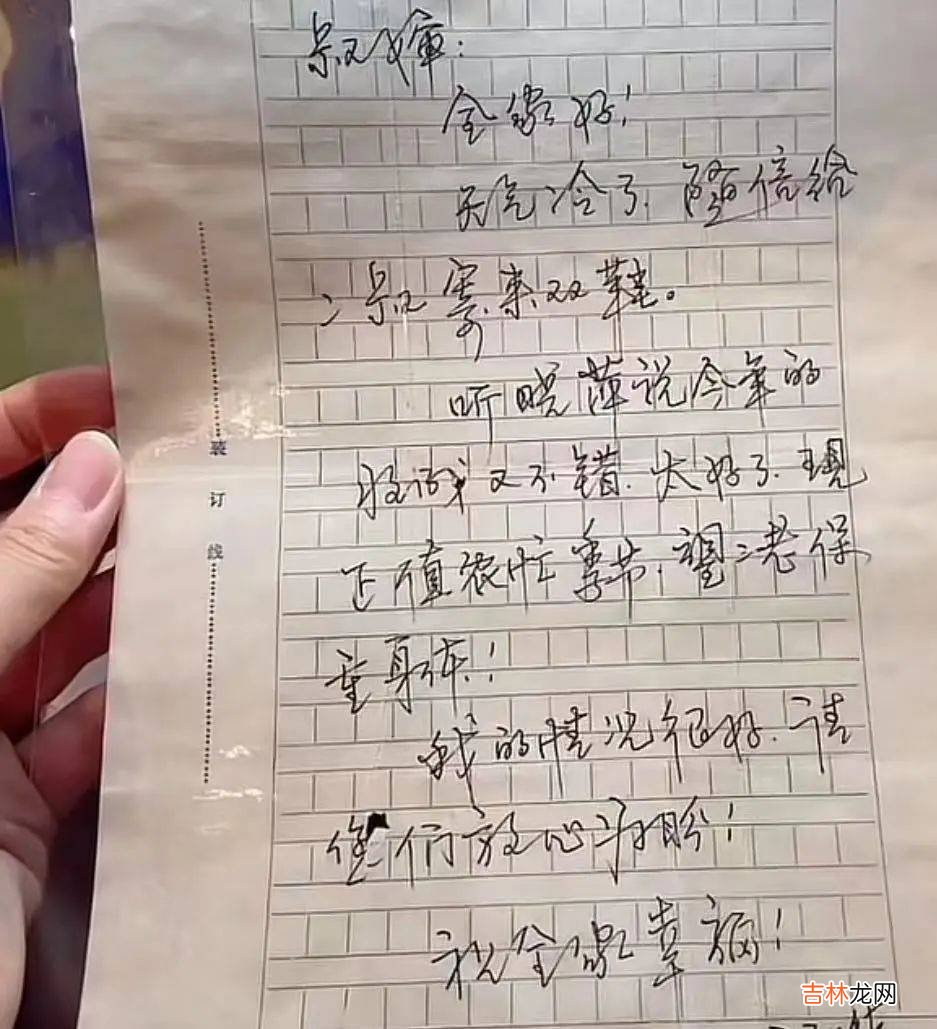 叔婶：
全家好！
天气冷了.随信给
二叔寄来双鞋。
听晓萍说今年的
收成又不错.太好了.现
正值农忙季节.望二老保
重身体！
我的情况很好.请
您们放心
祝全家幸福！
装
订
线
吉林龙网